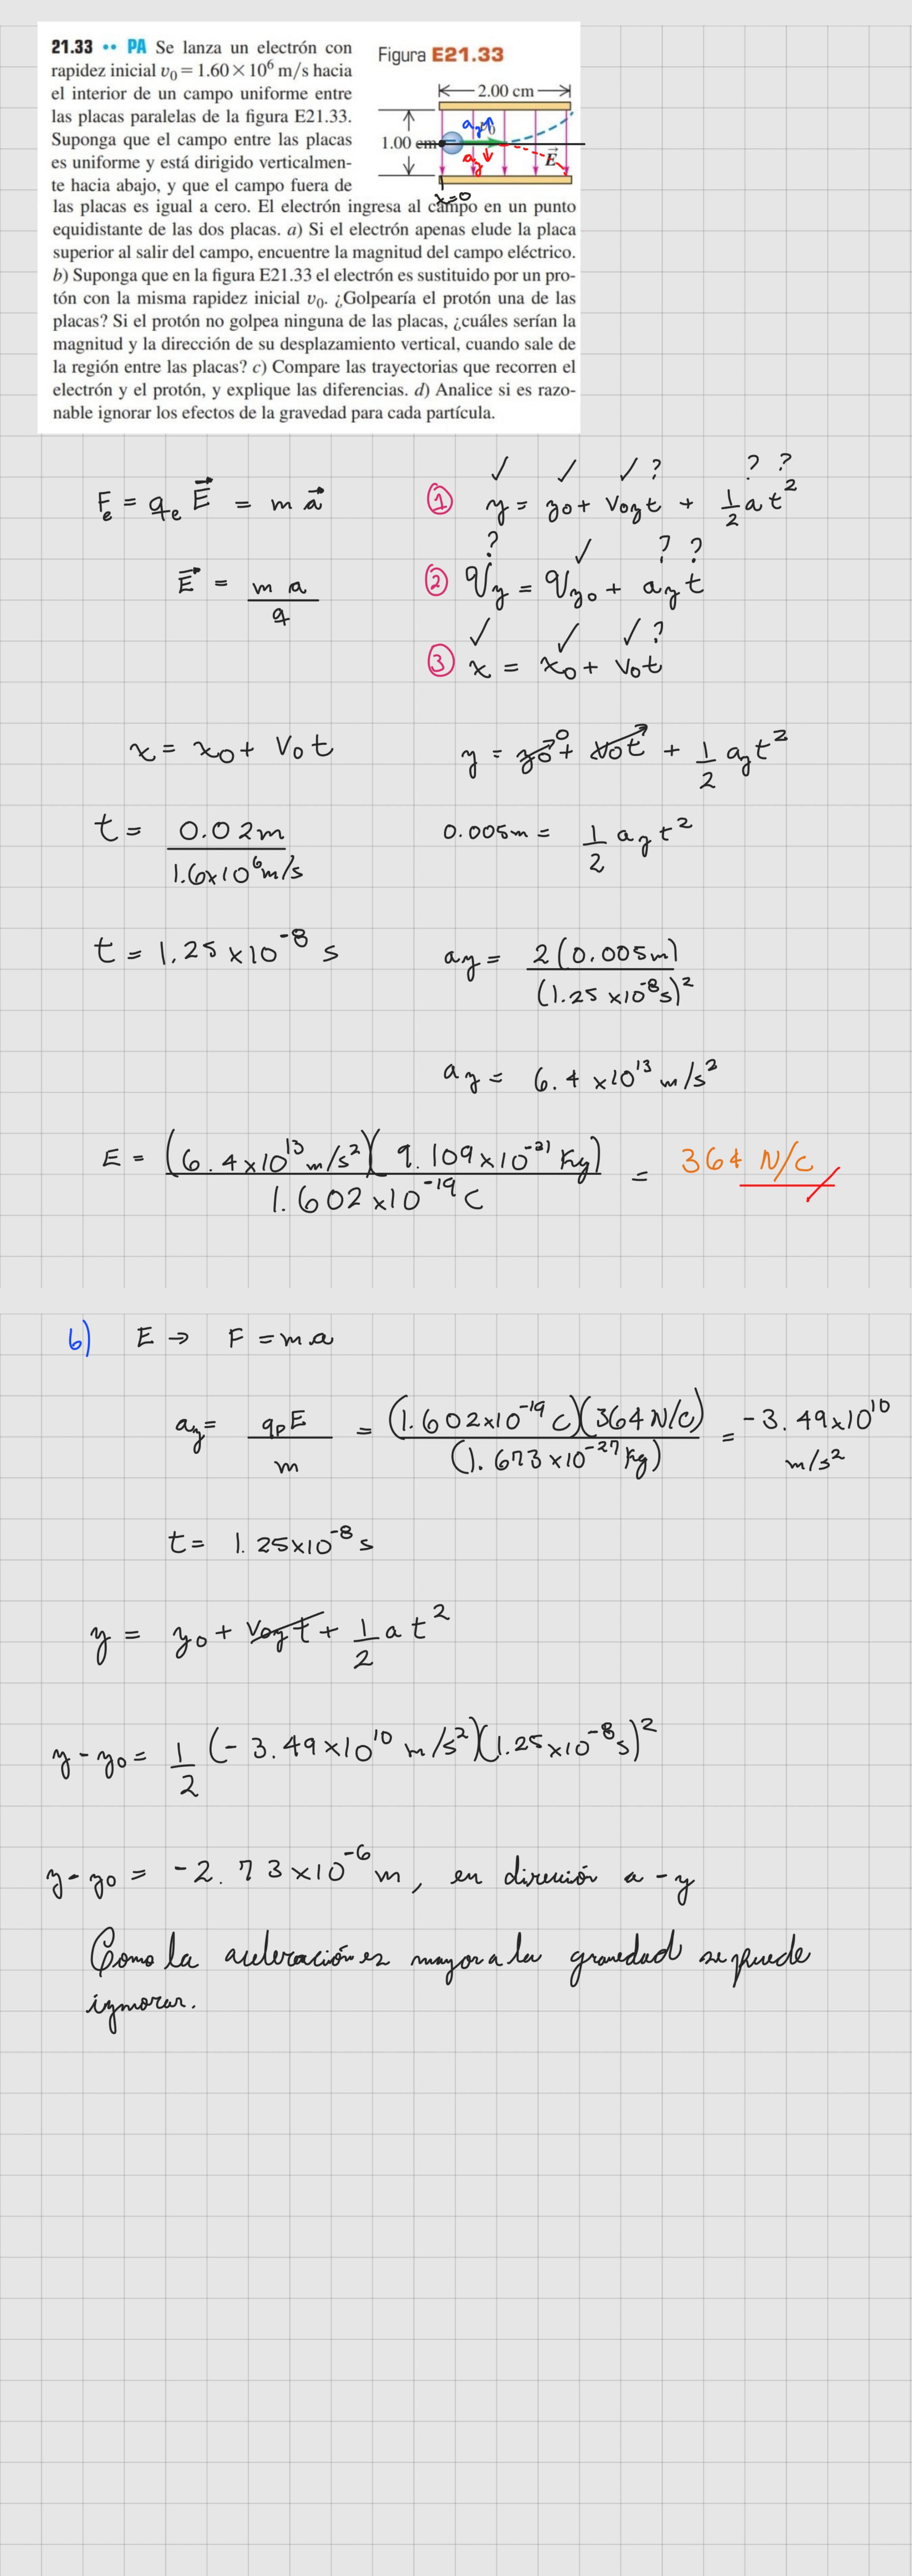 21.33 •• PA Se lanza un electrón con
rapidez inicial v₀ = 1.60 × 10⁶ m/s hacia
el interior de un campo uniforme entre
las placas paralelas de la figura E21.33.
Suponga que el campo entre las placas
es uniforme y está dirigido verticalmen-
te hacia abajo, y que el campo fuera de
las placas es igual a cero. El electrón ingresa al campo en un punto
equidistante de las dos placas. a) Si el electrón apenas elude la placa
superior al salir del campo, encuentre la magnitud del campo eléctrico.
b) Suponga que en la figura E21.33 el electrón es sustituido por un pro-
tón con la misma rapidez inicial v₀. ¿Golpearía el protón una de las
placas? Si el protón no golpea ninguna de las placas, ¿cuáles serían la
magnitud y la dirección de su desplazamiento vertical, cuando sale de
la región entre las placas? c) Compare las trayectorias que recorren el
electrón y el protón, y explique las diferencias. d) Analice si es razo-
nable ignorar los efectos de la gravedad para cada partícula.
Figura E21.33
2.00 cm
ay↑
1.00 cm
ay↓
E⃗
x=0
Fe = qe E⃗ = m a⃗
E⃗ = m a / q
✓ ✓ ✓ ? ? ?
① y = y0 + voyt + 1/2 at²
? ✓ ? ?
② Vy = Vyo + ayt
✓ ✓ ✓ ?
③ x = x0 + Vot
x = x0 + Vot
t = 0.02m / 1.6x10⁶m/s
t = 1.25 x10⁻⁸ s
y = y0 0 + vot + 1/2 ayt²
0.005m = 1/2 ayt²
ay = 2(0.005m) / (1.25 x10⁻⁸s)²
ay = 6.4 x10¹³ m/s²
E = (6.4x10¹³m/s²)(9.109x10⁻³¹ Kg) / 1.602x10⁻¹⁹C = 364 N/C
b) E → F = ma
ay = qpE / m = (1.602x10⁻¹⁹C)(364N/C) / (1.673x10⁻²⁷Kg) = -3.49x10¹⁰
m/s²
t = 1.25x10⁻⁸s
y = y0 + voyt + 1/2 at²
y-y0 = 1/2 (-3.49x10¹⁰ m/s²)(1.25x10⁻⁸s)²
y-y0 = -2.73x10⁻⁶m, en dirección a -y
Como la aceleración es mayor a la gravedad se puede
ignorar.